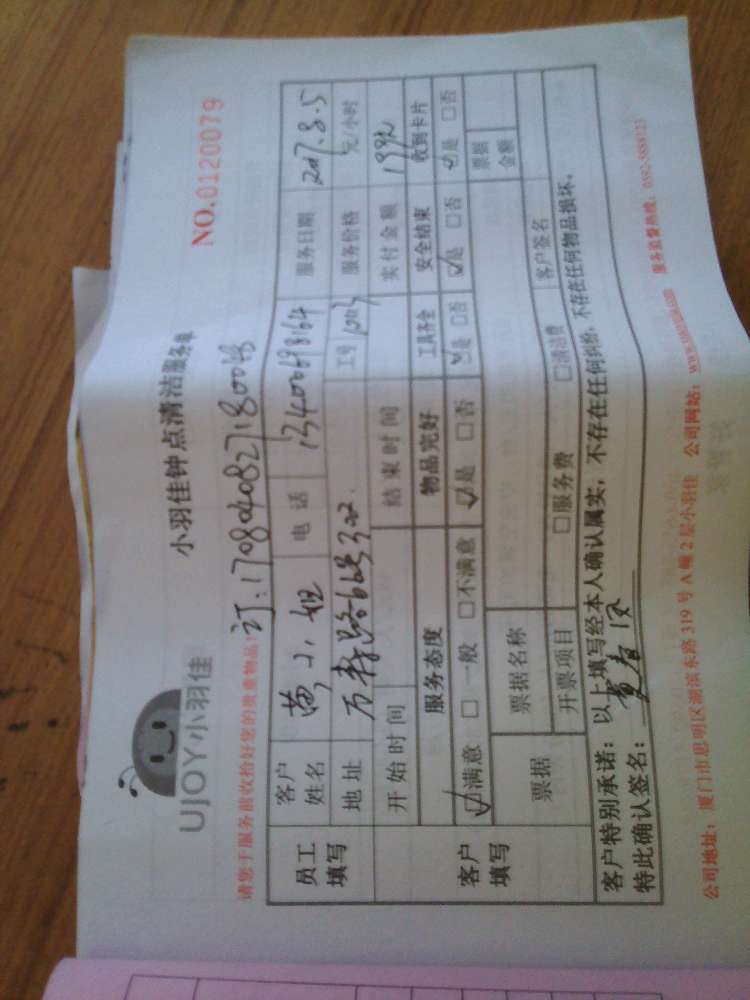 UJOY小羽佳
小羽佳钟点清洁服务单
NO.0120079
请您于服务前收拾好您的贵重物品!
订:170840827180048
员工填写
客户姓名 黄小姐 电话 13400698164 服务日期 2017.8.5
地址 工号 1003 服务价格 元/小时
开始时间 结束时间 实付金额 199元
客户填写
服务态度 物品完好 工具齐全 安全结束 收到卡片
☑满意 □一般 □不满意 ☑是 □否 ☑是 □否 ☑是 □否 ☑是 □否
票据 票据名称 票据金额
开票项目 □服务费 □清洁费 客户签名
客户特别承诺:以上填写经本人确认属实,不存在任何纠纷,不存在任何物品损坏。
特此确认签名:
公司地址:厦门市思明区湖滨东路319号A幢2层小羽佳 公司网站: 服务监督热线:0592-5888123